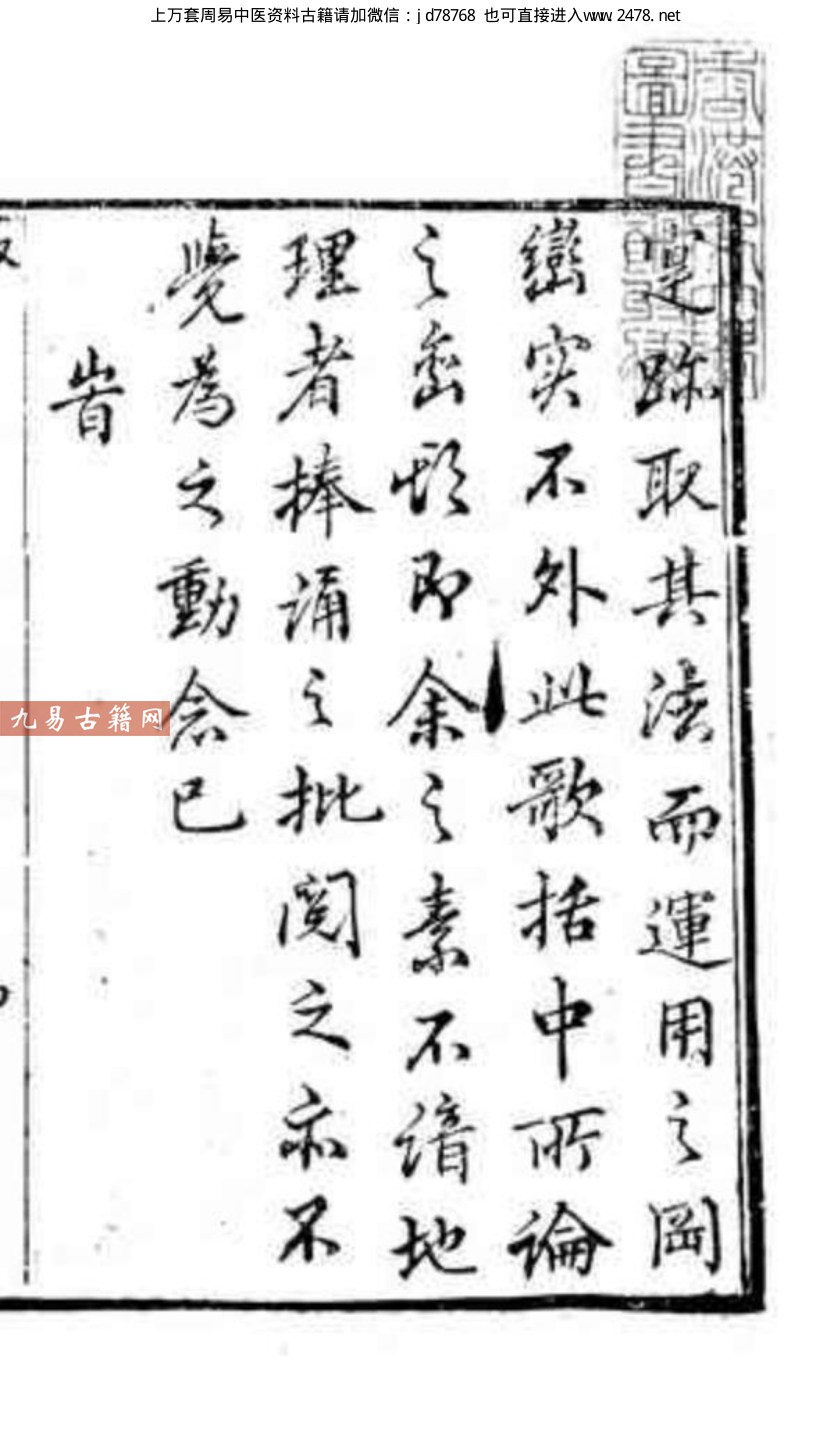 上万套周易中医资料古籍请加微信：jd78768 也可直接进入www.2478.net
跡取其法而運用之岡
巒实不外此歌括中所論
之巒頭即余之素不諳地
理者捧誦之批閱之亦不
覺為之動念已
峕
九易古籍网